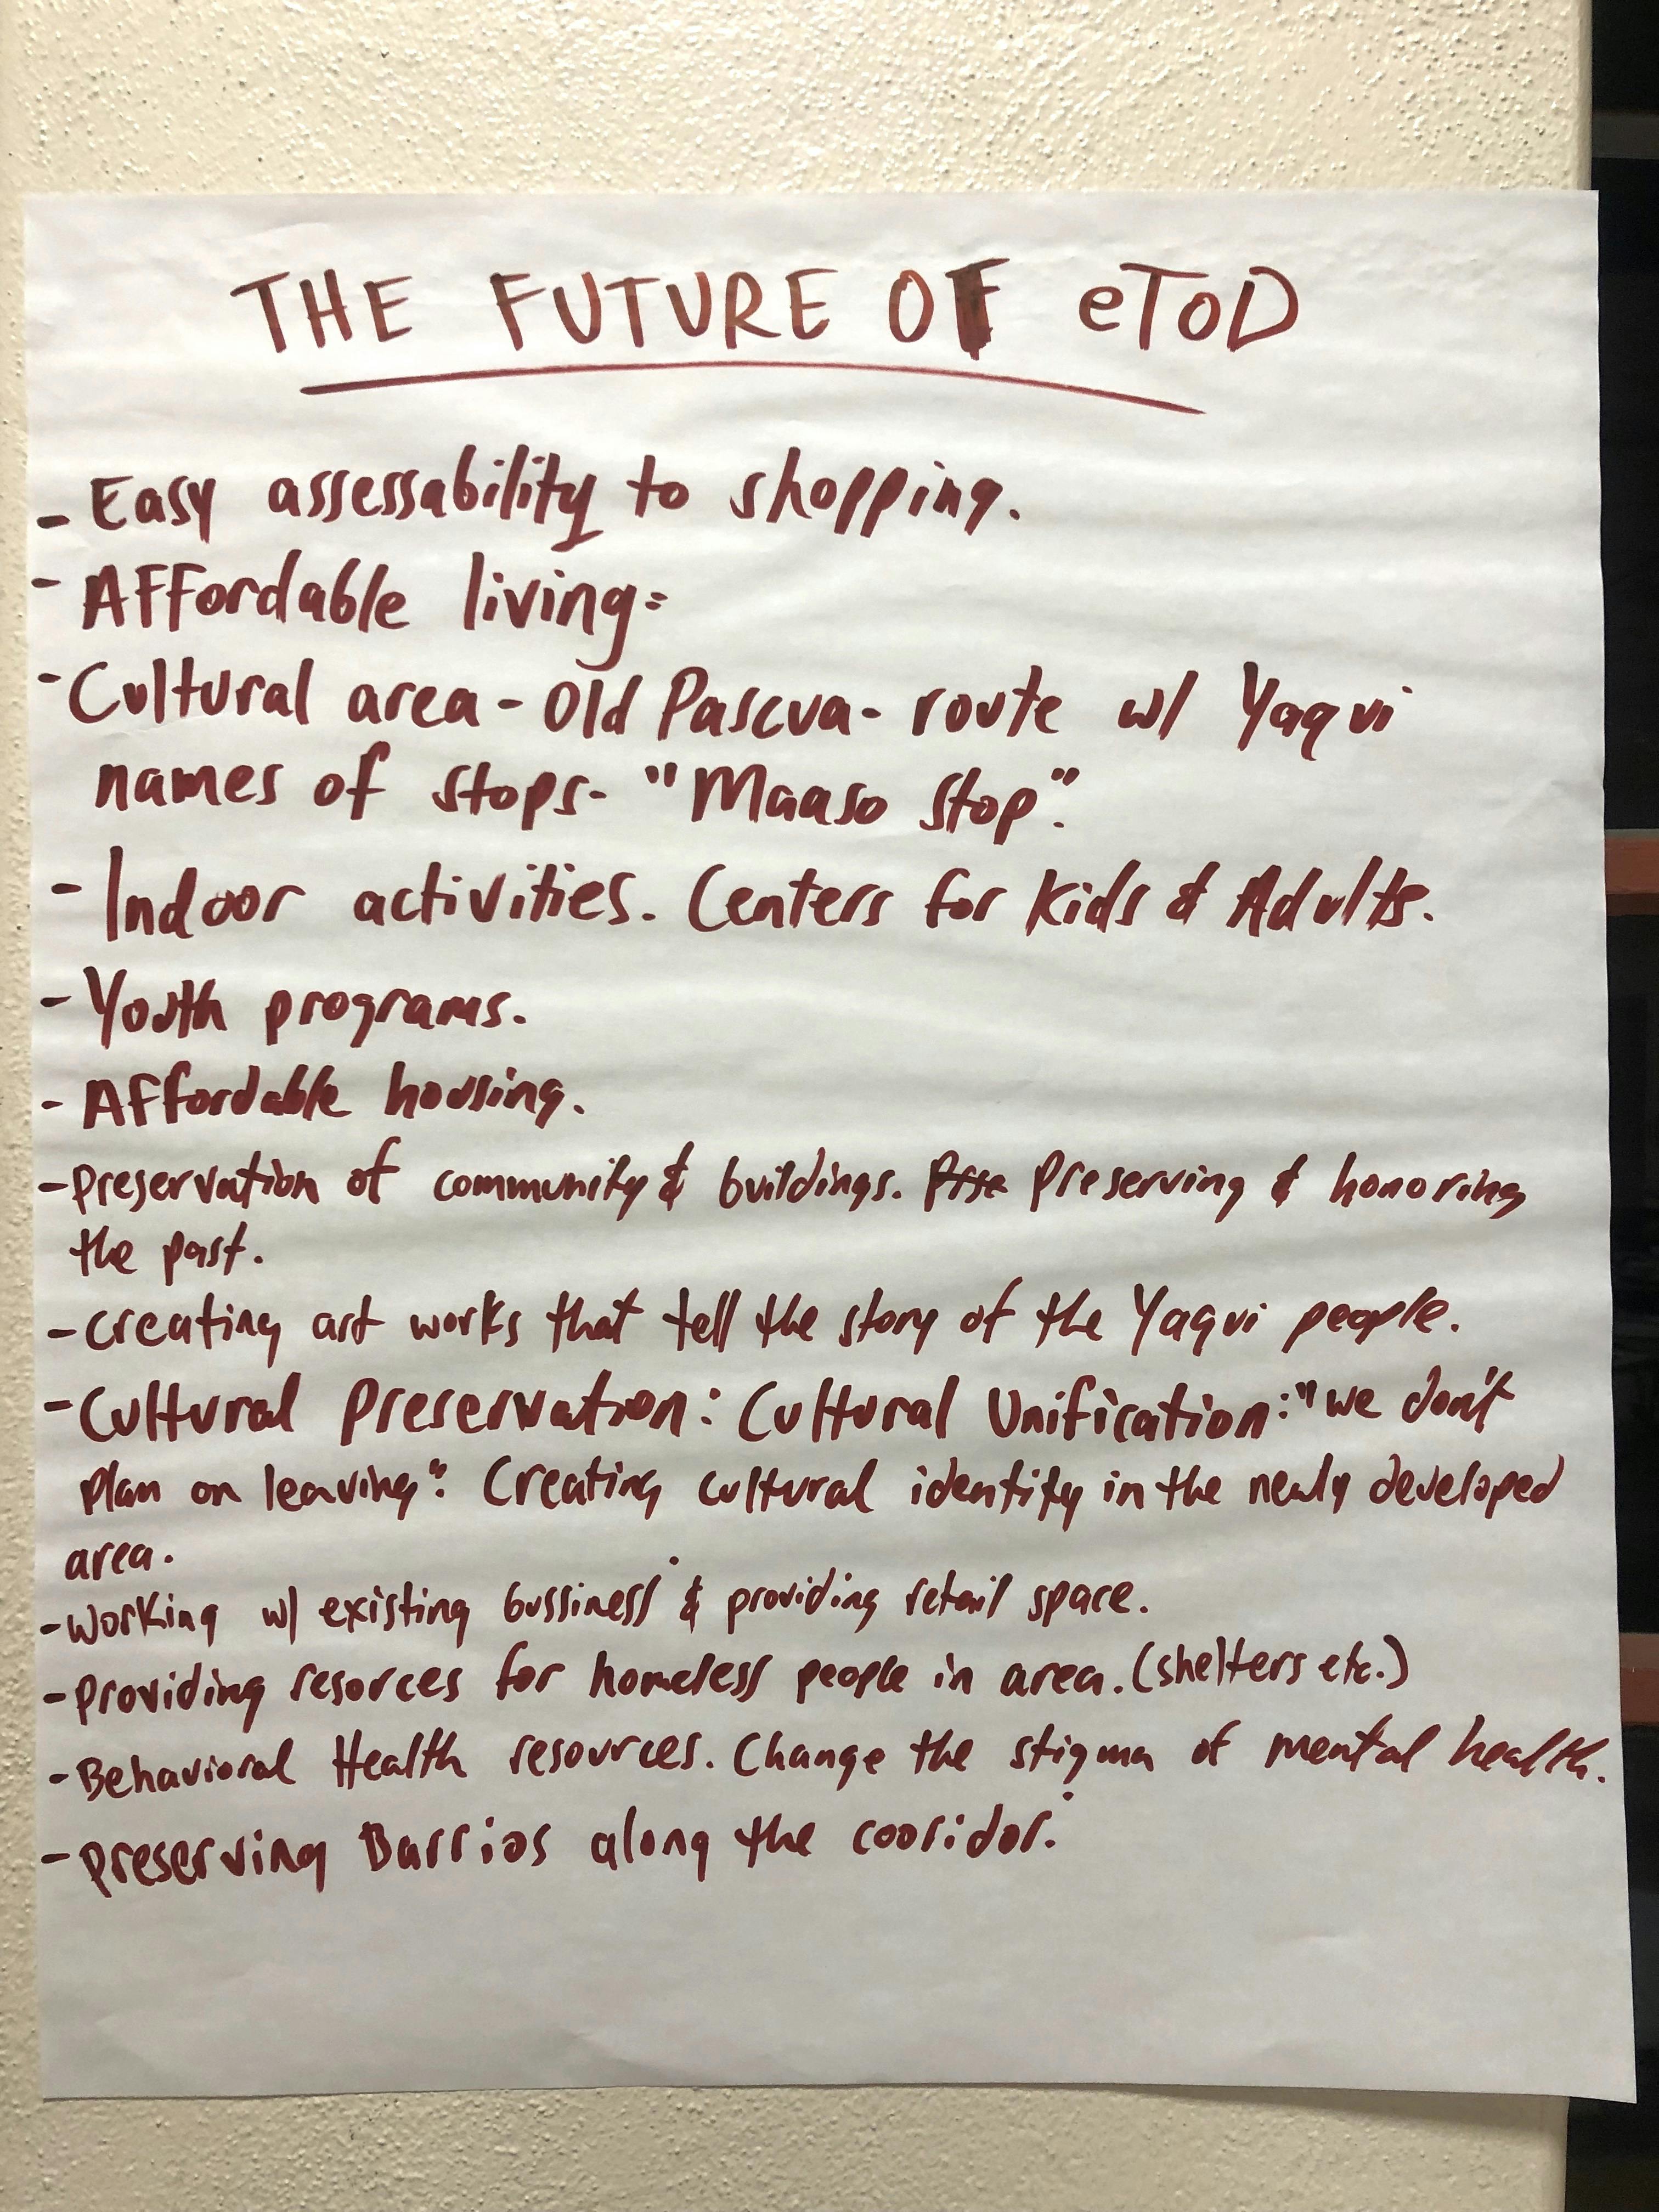 THE FUTURE OF eToD
- Easy assessability to shopping.
- Affordable living=
- Cultural area - Old Pascua - route w/ Yaqui
names of stops - "Maaso Stop".
- Indoor activities. Centers for Kids & Adults.
- Youth programs.
- Affordable housing.
- Preservation of community & buildings. Preserving & honoring
the past.
- Creating art works that tell the story of the Yaqui people.
- Cultural Preservation: Cultural Unification: "we don't
plan on leaving". Creating cultural identity in the newly developed
area.
- Working w/ existing bussiness & providing retail space.
- Providing resorces for homeless people in area. (shelters etc.)
- Behavioral Health resources. Change the stigma of mental health.
- Preserving Barrios along the cooridor.